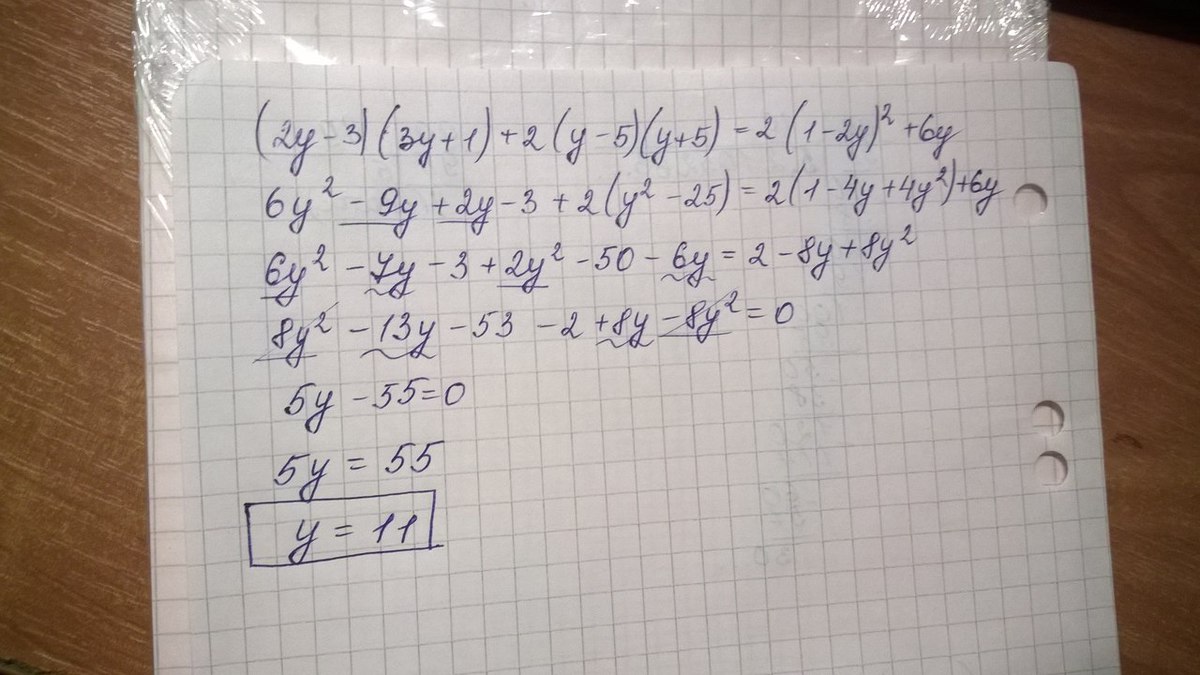 (2y-3)(3y+1)+2(y-5)(y+5)=2(1-2y)²+6y
6y²-9y+2y-3+2(y²-25)=2(1-4y+4y²)+6y
6y²-7y-3+2y²-50-6y=2-8y+8y²
8y²-13y-53-2+8y-8y²=0
5y-55=0
5y=55
y=11